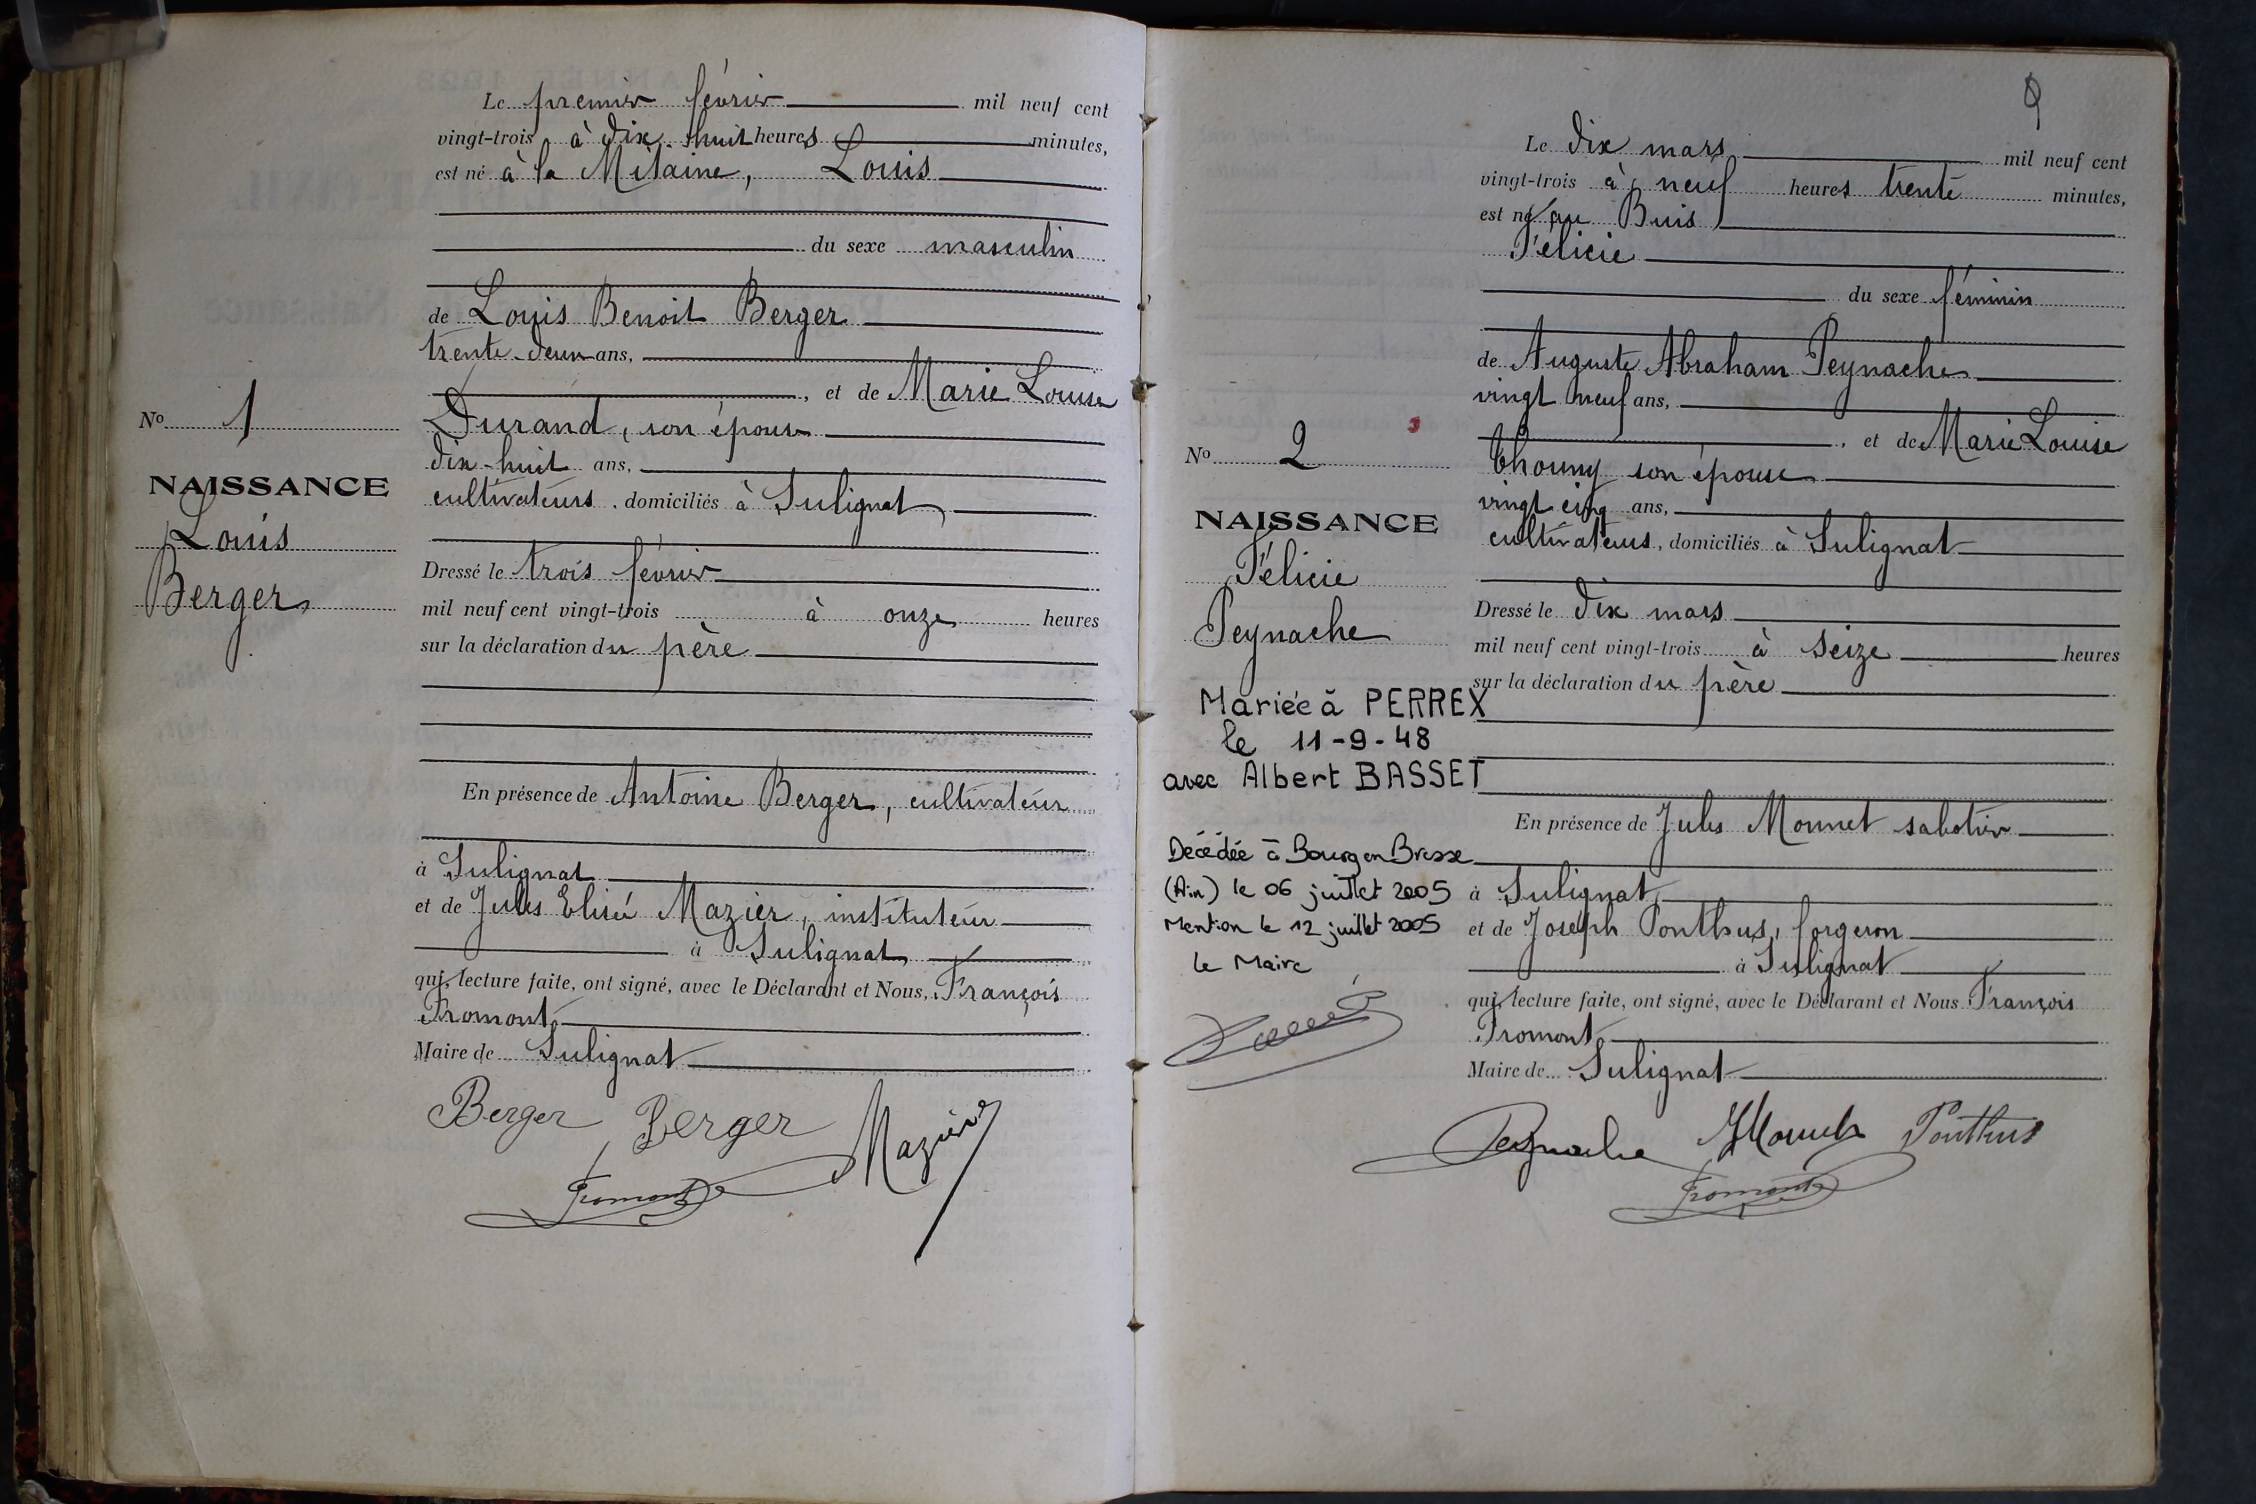 Le premier février mil neuf cent
vingt-trois à dix-huit heures minutes,
est né à la Mitaine, Louis
du sexe masculin
de Louis Benoit Berger
trente-deux ans,
, et de Marie Louise
Durand, son épouse
dix-huit ans,
cultivateurs, domiciliés à Sulignat
Dressé le trois février
mil neuf cent vingt-trois à onze heures
sur la déclaration du père
En présence de Antoine Berger, cultivateur
à Sulignat
et de Jules Elisée Mazier, instituteur
à Sulignat
qui, lecture faite, ont signé, avec le Déclarant et Nous, François
Fromont
Maire de Sulignat
Berger Berger Mazier
Fromont
No 1
NAISSANCE
Louis
Berger
9
Le dix mars mil neuf cent
vingt-trois à neuf heures trente minutes,
est né au Buis
Félicie
du sexe féminin
de Auguste Abraham Peynache
vingt neuf ans,
, et de Marie Louise
Thouny son épouse
vingt cinq ans,
cultivateurs, domiciliés à Sulignat
Dressé le dix mars
mil neuf cent vingt-trois à seize heures
sur la déclaration du père
En présence de Jules Monnet sabotier
à Sulignat
et de Joseph Ponthus, forgeron
à Sulignat
qui, lecture faite, ont signé, avec le Déclarant et Nous François
Fromont
Maire de Sulignat
Peynache JMonnet Ponthus
Fromont
No 2
NAISSANCE
Félicie
Peynache
Mariée à PERREX
le 11-9-48
avec Albert BASSET
Décédée à Bourg en Bresse
(Ain) le 06 juillet 2005
Mention le 12 juillet 2005
le Maire